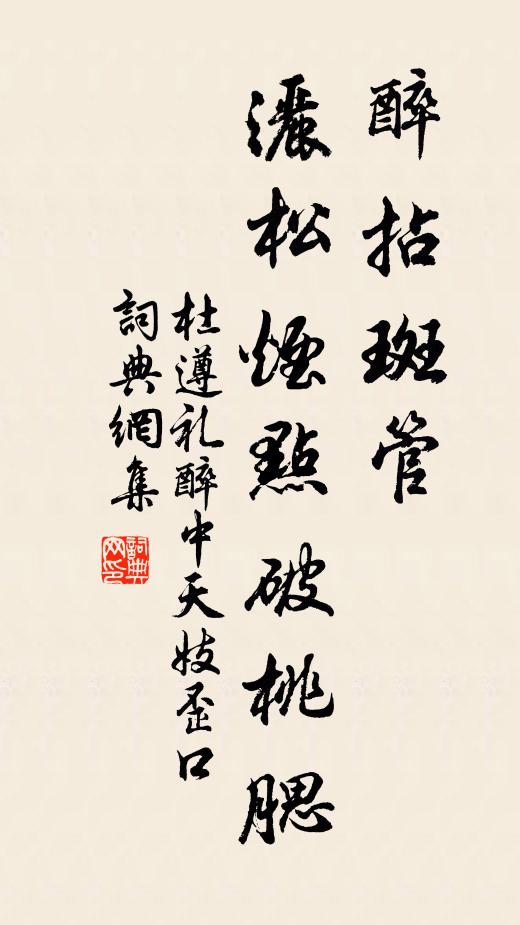 醉拈斑管
灑松煙點破桃腮
杜遵礼醉中天妓歪口
詞典網集
詞典网印